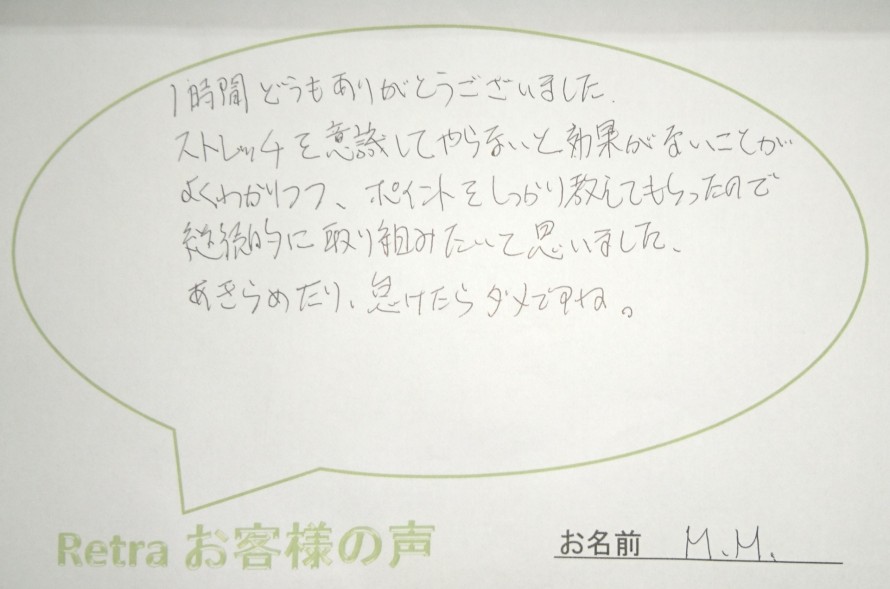 1時間どうもありがとうございました.
ストレッチを意識してやらないと効果がないことが
よくわかりつつ、ポイントをしっかり教えてもらったので
継続的に取り組みたいて思いました、
あきらめたり、怠けたらダメですね。
Retra お客様の声
お名前 M.M.